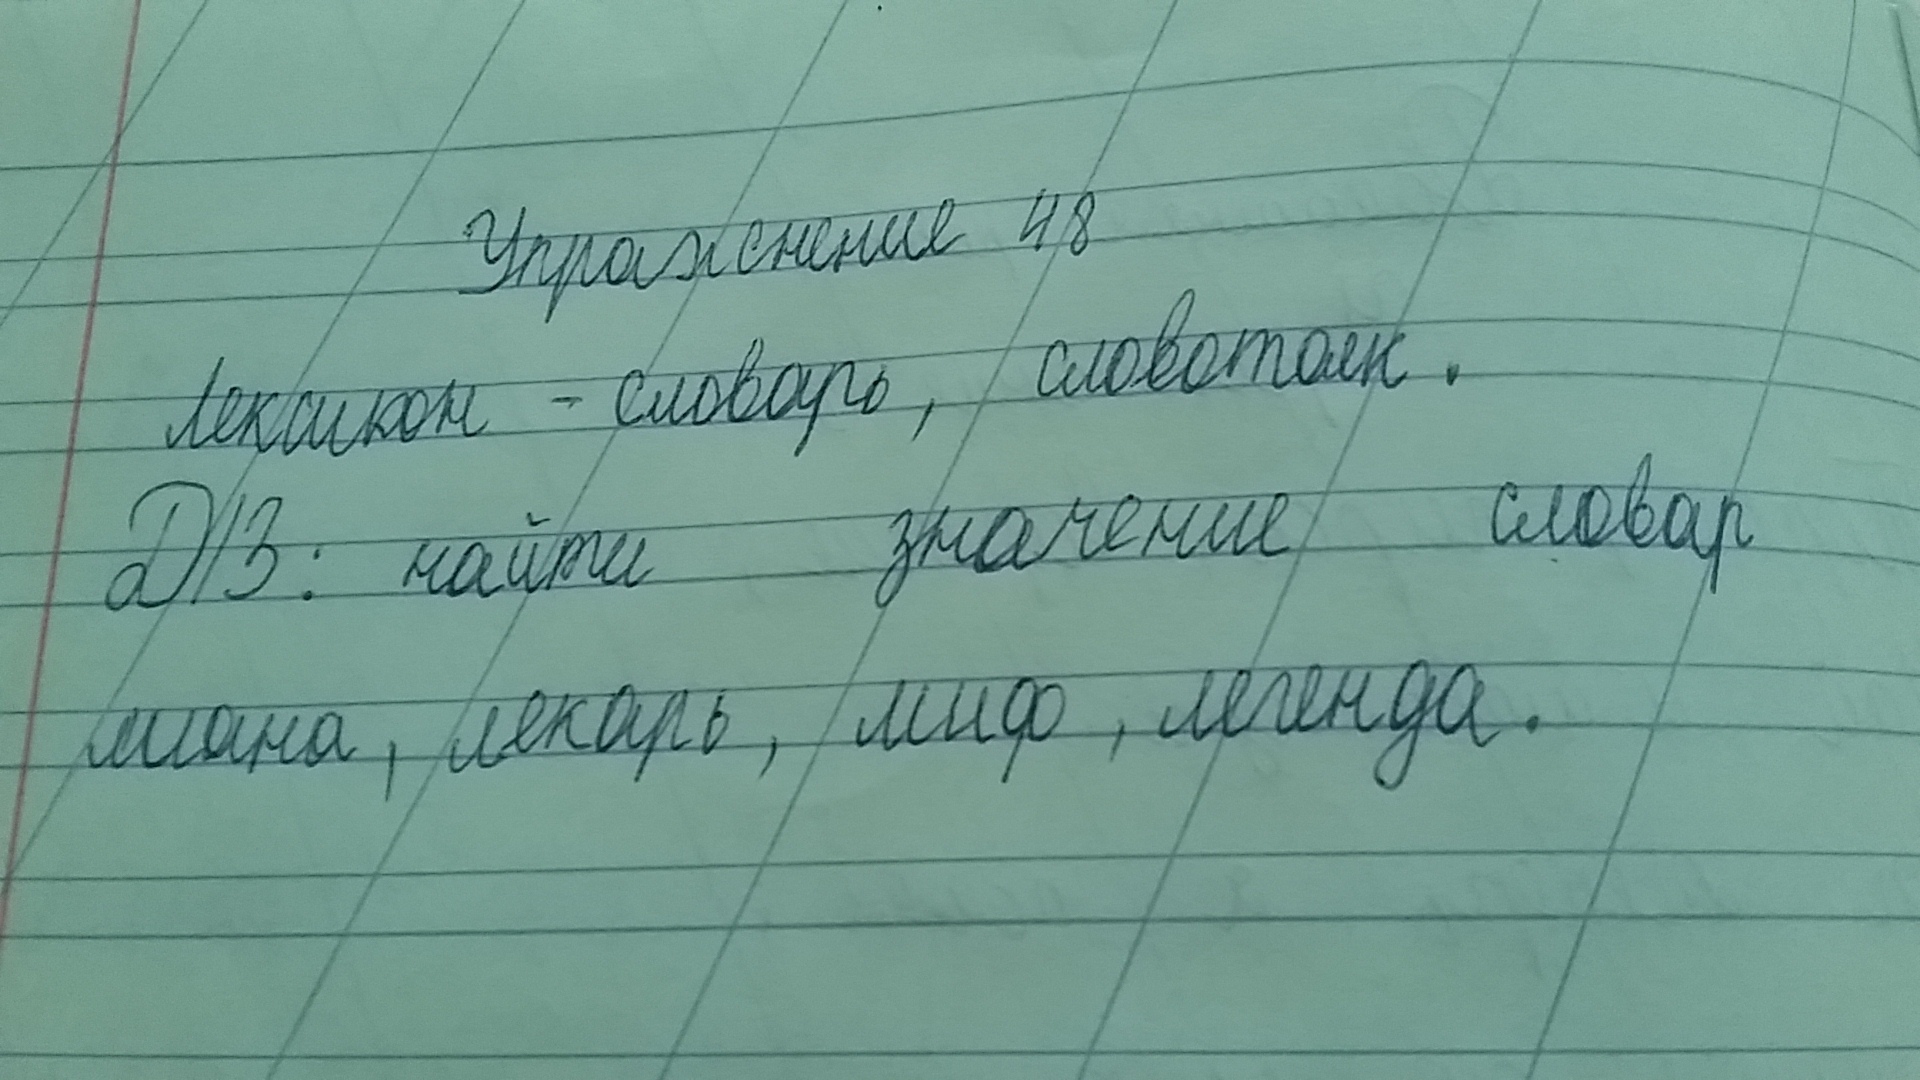 Упражнение 48
Лексикон - словарь, словотолк.
Д/З: найти значение словар
лиана, лекарь, миф, легенда.